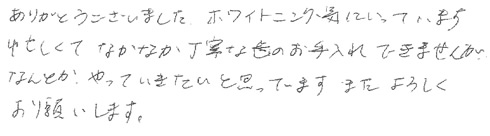 ありがとうございました。ホワイトニング気にいっています
忙しくてなかなか丁寧な歯のお手入れできませんが、
なんとか、やっていきたいと思っています またよろしく
お願いします。